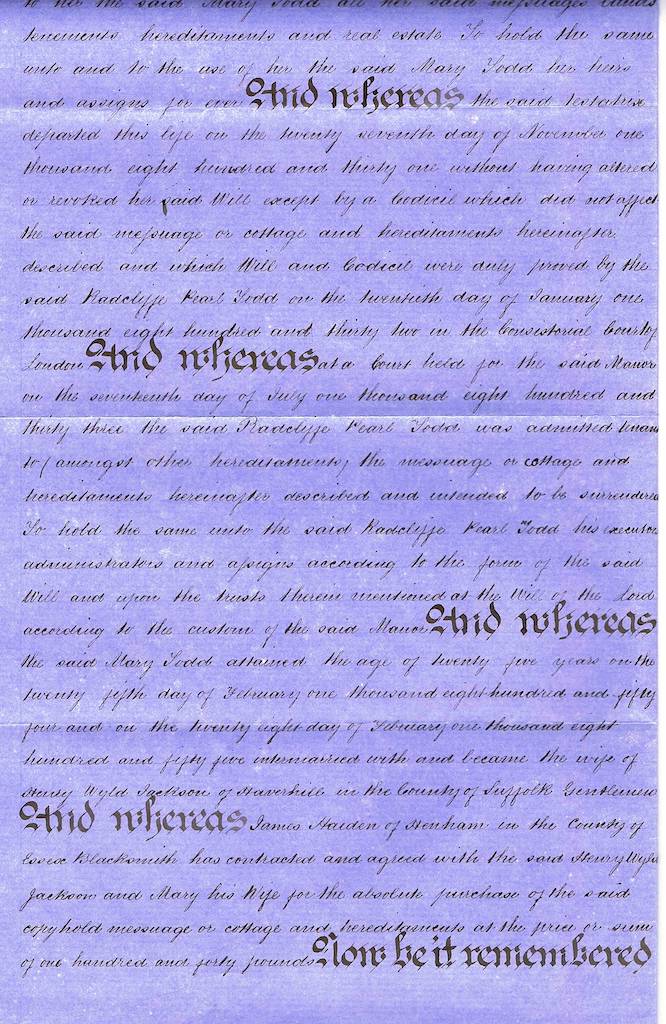 to her the said Mary Todd all her said messuages lands
tenements hereditaments and real estate To hold the same
unto and to the use of her the said Mary Todd her heirs
and assigns for ever And whereas the said testatrix
departed this life on the twenty seventh day of November one
thousand eight hundred and thirty one without having altered
or revoked her said Will except by a Codicil which did not affect
the said messuage or cottage and hereditaments hereinafter
described and which Will and Codicil were duly proved by the
said Radclyffe Pearl Todd on the twentieth day of January one
thousand eight hundred and thirty two in the Consistorial Court of
London And whereas at a Court held for the said Manor
on the seventeenth day of July one thousand eight hundred and
thirty three the said Radclyffe Pearl Todd was admitted tenant
to (amongst other hereditaments) the messuage or cottage and
hereditaments hereinafter described and intended to be surrendered
To hold the same unto the said Radclyffe Pearl Todd his executors
administrators and assigns according to the form of the said
Will and upon the trusts therein mentioned at the Will of the Lord
according to the custom of the said Manor And whereas
the said Mary Todd attained the age of twenty five years on the
twenty fifth day of February one thousand eight hundred and fifty
four and on the twenty eight day of February one thousand eight
hundred and fifty five intermarried with and became the wife of
Henry Wyld Jackson of Haverhill in the County of Suffolk Gentleman
And whereas James Haiden of Henham in the County of
Essex Blacksmith has contracted and agreed with the said Henry Wyld
Jackson and Mary his Wife for the absolute purchase of the said
copyhold messuage or cottage and hereditaments at the price or sum
of one hundred and forty pounds Now be it remembered